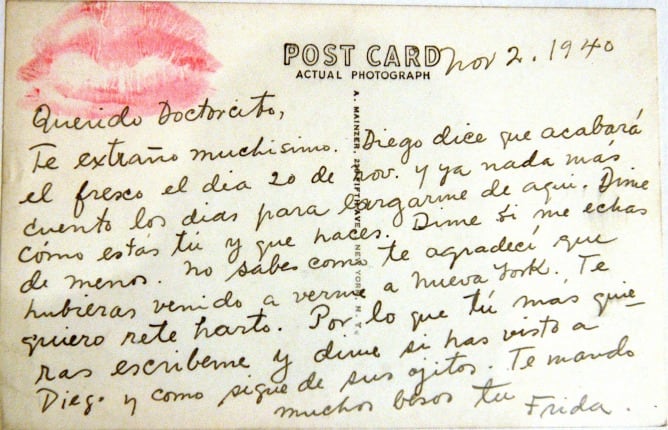 POST CARD
ACTUAL PHOTOGRAPH
Nov 2. 1940
A. MAINZER, FIFTH AVE NEW YORK, N. Y.
Querido Doctorcito,
Te extraño muchisimo. Diego dice que acabará
el fresco el dia 20 de nov. y ya nada más
cuento los dias para largarme de aqui. Dime
cómo estás tú y que haces. Dime si me echas
de menos. no sabes como te agradecí que
hubieras venido a verme a nueva York. Te
quiero rete harto. Por lo que tú más quie-
ras escribeme y dime si has visto a
Diego y como sigue de sus ojitos. Te mando
muchos besos tu Frida.